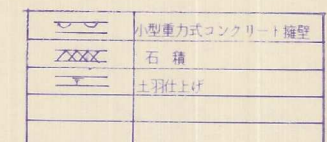 小型重力式コンクリート擁壁
石積
土羽仕上げ